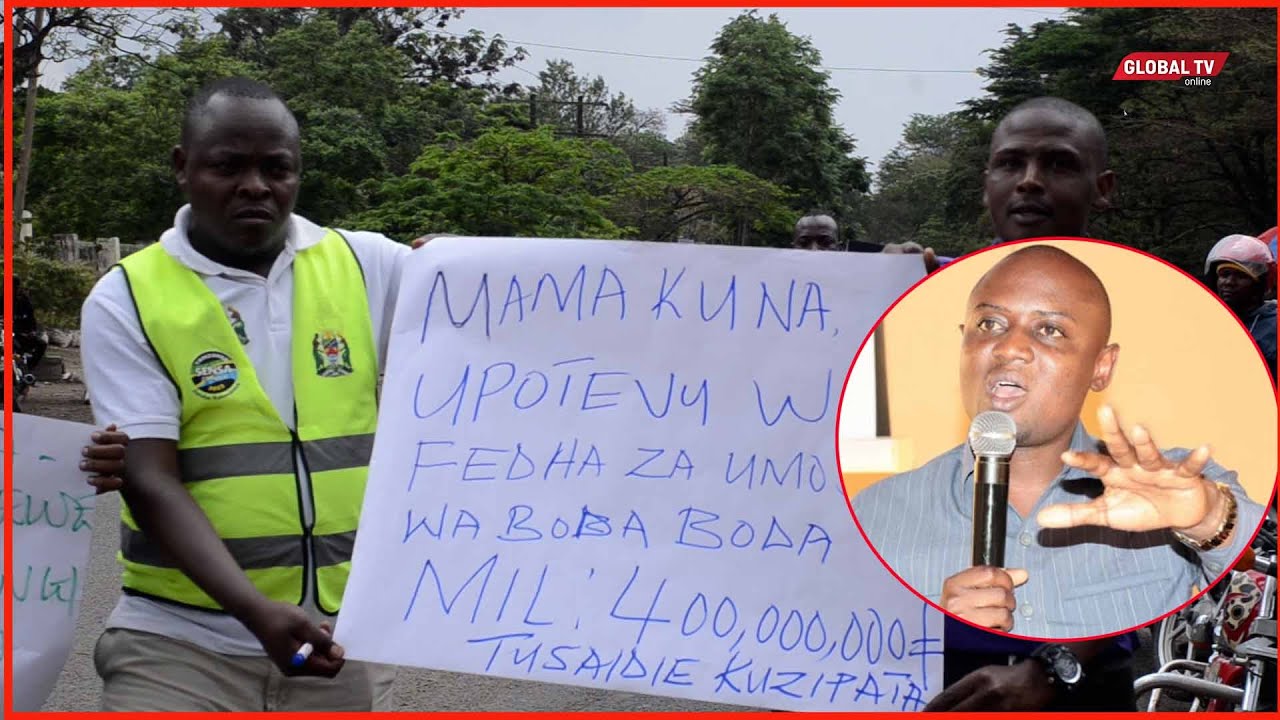 GLOBAL TV
online
SENSA
MAMA KUNA,
UPOTEVU W
FEDHA ZA UMO
WA BODA BODA
MIL: 400,000,000=
TUSAIDIE KUZIPATA